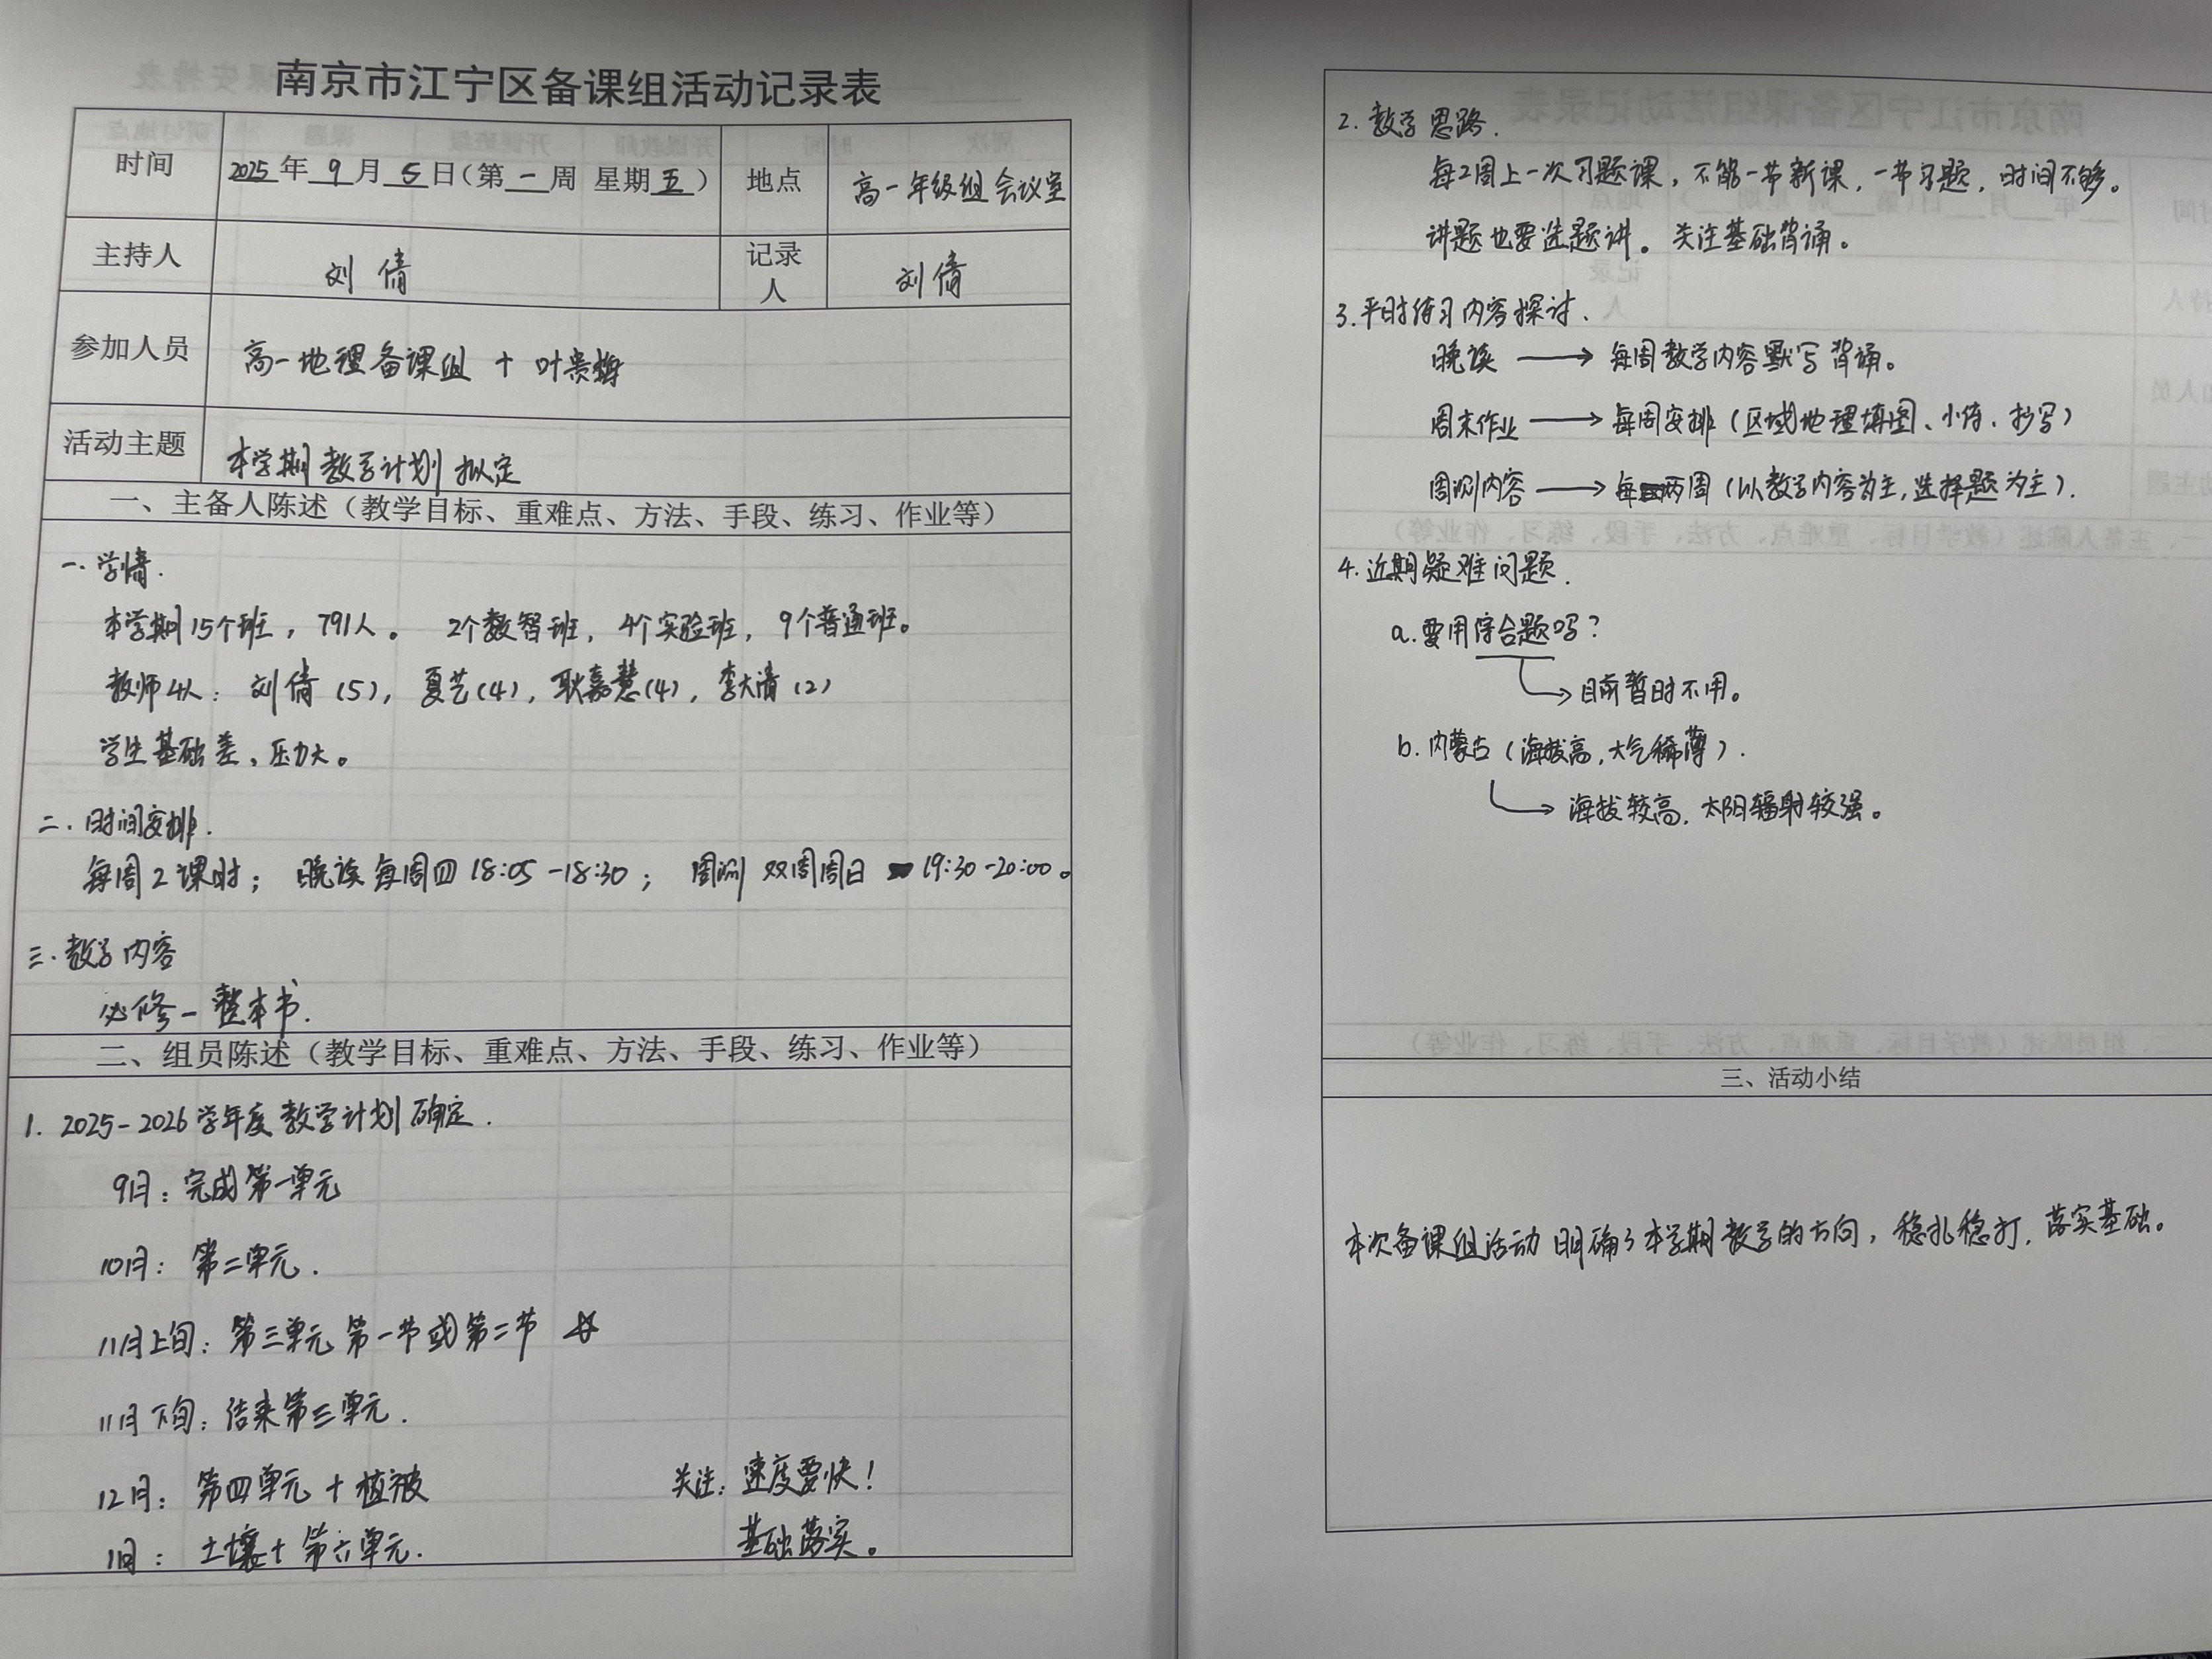 南京市江宁区备课组活动记录表
时间 2025年 9月 5日(第一周 星期五) 地点 高一年级组会议室
主持人 刘倩 记录人 刘倩
参加人员 高一地理备课组 + 叶贵梅
活动主题 本学期教学计划拟定
一、主备人陈述(教学目标、重难点、方法、手段、练习、作业等)
一.学情.
本学期15个班,791人。 2个数智班,4个实验班,9个普通班。
教师4人: 刘倩(5),夏艺(4),耿嘉慧(4),李大清(2)
学生基础差、压力大。
二.时间安排.
每周2课时; 晚读每周四18:05-18:30; 周测 双周周日 19:30-20:00。
三.教学内容
必修一整本书.
二、组员陈述(教学目标、重难点、方法、手段、练习、作业等)
1. 2025-2026学年度教学计划确定.
9月:完成第一单元
10月:第二单元.
11月上旬:第三单元第一节或第二节 ☆
11月下旬:结束第三单元.
12月:第四单元+植被 关注:速度要快!
1月:土壤+第六单元. 基础落实。
2.教学思路.
每2周上一次习题课,不能一节新课,一节习题,时间不够。
讲题也要选题讲。关注基础背诵。
3.平时练习内容探讨.
晚读 → 每周教学内容默写背诵。
周末作业 → 每周安排(区域地理填图、小练、抄写)
周测内容 → 每两周(以教学内容为主,选择题为主).
4.近期疑难问题.
a.要用综合题吗?
→目前暂时不用。
b.内蒙古(海拔高,大气稀薄).
→海拔较高,太阳辐射较强。
三、活动小结
本次备课组活动明确了本学期教学的方向,稳扎稳打,落实基础。